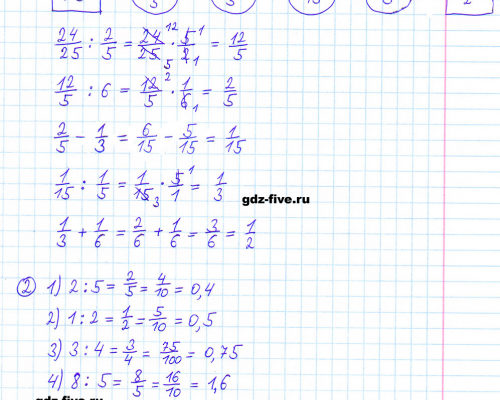 24/25 : 2/5 = 24/25 · 5/2 = 12/5
12/5 : 6 = 12/5 · 1/6 = 2/5
2/5 - 1/3 = 6/15 - 5/15 = 1/15
1/15 : 1/5 = 1/15 · 5/1 = 1/3
gdz-five.ru
1/3 + 1/6 = 2/6 + 1/6 = 3/6 = 1/2
2 1) 2 : 5 = 2/5 = 4/10 = 0,4
2) 1 : 2 = 1/2 = 5/10 = 0,5
3) 3 : 4 = 3/4 = 75/100 = 0,75
4) 8 : 5 = 8/5 = 16/10 = 1,6
gdz-five.ru